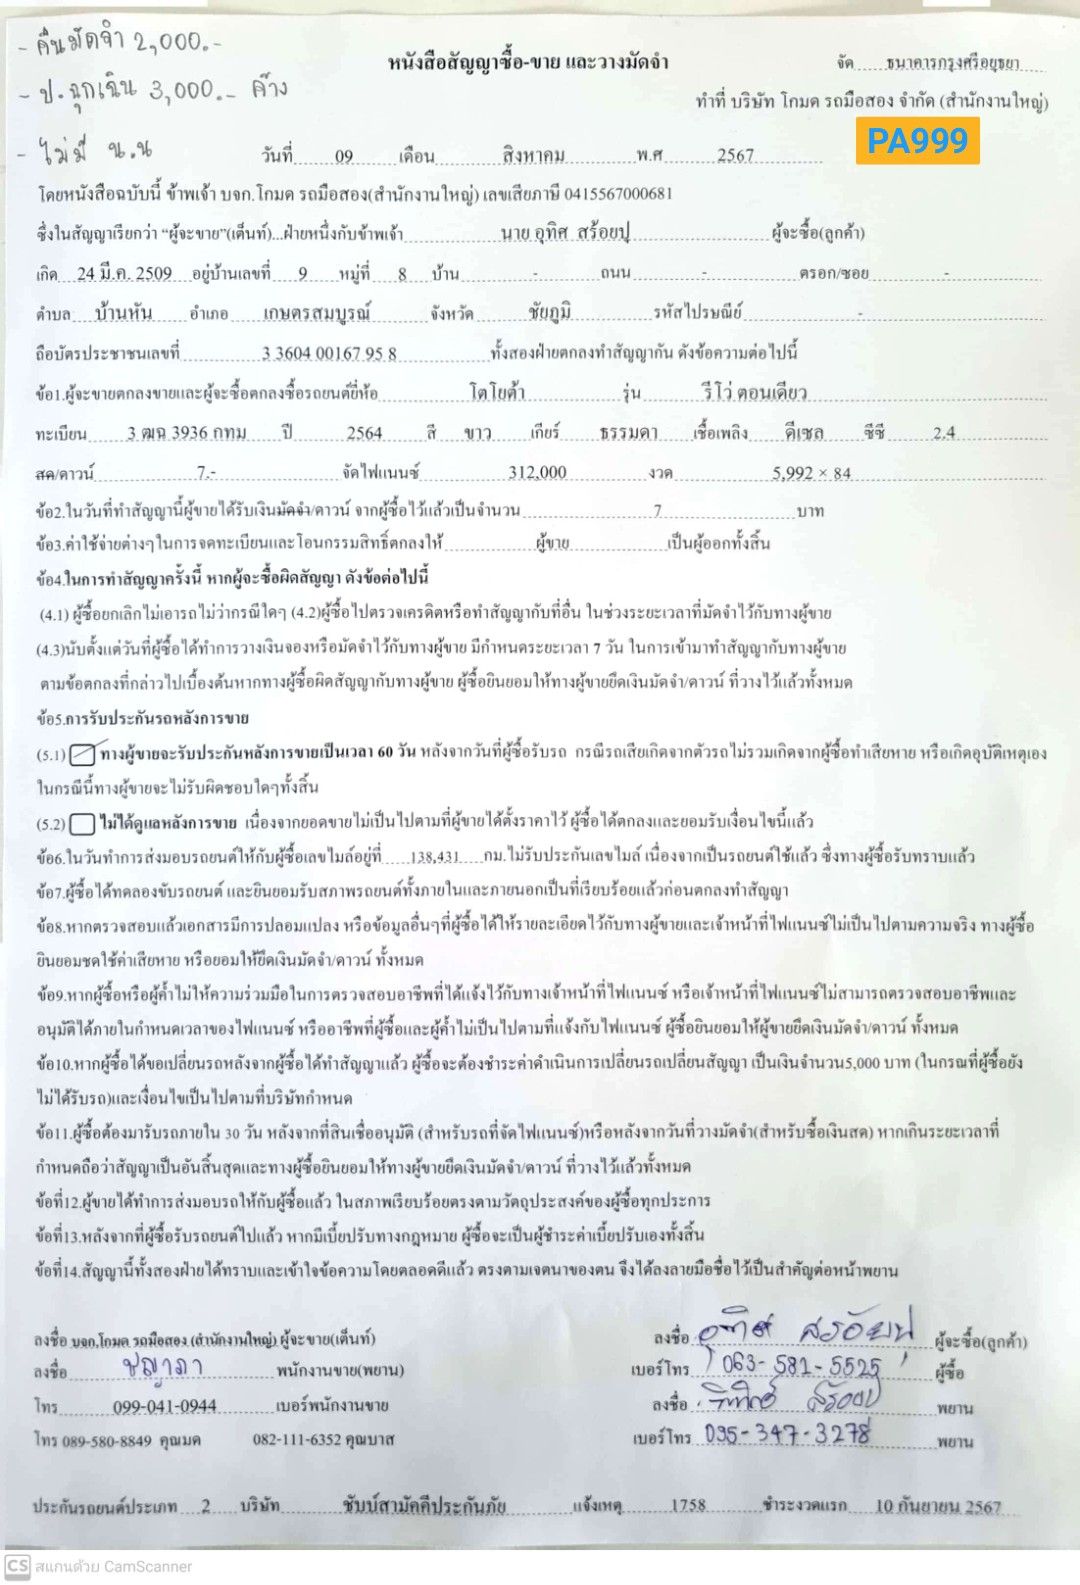 - คืนมัดจำ 2,000.-
- ป.ฉุกเฉิน 3,000.- ค้าง
- ไม่มี น.น
หนังสือสัญญาซื้อ-ขาย และวางมัดจำ
จัด ธนาคารกรุงศรีอยุธยา
ทำที่ บริษัท โกมด รถมือสอง จำกัด (สำนักงานใหญ่)
PA999
วันที่ 09 เดือน สิงหาคม พ.ศ 2567
โดยหนังสือฉบับนี้ ข้าพเจ้า บจก.โกมด รถมือสอง(สำนักงานใหญ่) เลขเสียภาษี 0415567000681
ซึ่งในสัญญาเรียกว่า "ผู้จะขาย"(เต็นท์)...ฝ่ายหนึ่งกับข้าพเจ้า นาย อุทิศ สร้อยปุ ผู้จะซื้อ(ลูกค้า)
เกิด 24 มี.ค. 2509 อยู่บ้านเลขที่ 9 หมู่ที่ 8 บ้าน - ถนน - ตรอก/ซอย -
ตำบล บ้านหัน อำเภอ เกษตรสมบูรณ์ จังหวัด ชัยภูมิ รหัสไปรษณีย์ -
ถือบัตรประชาชนเลขที่ 3 3604 00167 95 8 ทั้งสองฝ่ายตกลงทำสัญญากัน ดังข้อความต่อไปนี้
ข้อ1.ผู้จะขายตกลงขายและผู้จะซื้อตกลงซื้อรถยนต์ยี่ห้อ โตโยต้า รุ่น รีโว่ ตอนเดียว
ทะเบียน 3 ฒฉ 3936 กทม ปี 2564 สี ขาว เกียร์ ธรรมดา เชื้อเพลิง ดีเซล ซีซี 2.4
สด/ดาวน์ 7.- จัดไฟแนนซ์ 312,000 งวด 5,992 × 84
ข้อ2.ในวันที่ทำสัญญานี้ผู้ขายได้รับเงินมัดจำ/ดาวน์ จากผู้ซื้อไว้แล้วเป็นจำนวน 7 บาท
ข้อ3.ค่าใช้จ่ายต่างๆในการจดทะเบียนและโอนกรรมสิทธิ์ตกลงให้ ผู้ขาย เป็นผู้ออกทั้งสิ้น
ข้อ4.ในการทำสัญญาครั้งนี้ หากผู้จะซื้อผิดสัญญา ดังข้อต่อไปนี้
(4.1) ผู้ซื้อยกเลิกไม่เอารถไม่ว่ากรณีใดๆ (4.2)ผู้ซื้อไปตรวจเครดิตหรือทำสัญญากับที่อื่น ในช่วงระยะเวลาที่มัดจำไว้กับทางผู้ขาย
(4.3)นับตั้งแต่วันที่ผู้ซื้อได้ทำการวางเงินจองหรือมัดจำไว้กับทางผู้ขาย มีกำหนดระยะเวลา 7 วัน ในการเข้ามาทำสัญญากับทางผู้ขาย
ตามข้อตกลงที่กล่าวไปเบื้องต้นหากทางผู้ซื้อผิดสัญญากับทางผู้ขาย ผู้ซื้อยินยอมให้ทางผู้ขายยึดเงินมัดจำ/ดาวน์ ที่วางไว้แล้วทั้งหมด
ข้อ5.การรับประกันรถหลังการขาย
(5.1) ทางผู้ขายจะรับประกันหลังการขายเป็นเวลา 60 วัน หลังจากวันที่ผู้ซื้อรับรถ กรณีรถเสียเกิดจากตัวรถไม่รวมเกิดจากผู้ซื้อทำเสียหาย หรือเกิดอุบัติเหตุเอง
ในกรณีนี้ทางผู้ขายจะไม่รับผิดชอบใดๆทั้งสิ้น
(5.2) ไม่ได้ดูแลหลังการขาย เนื่องจากยอดขายไม่เป็นไปตามที่ผู้ขายได้ตั้งราคาไว้ ผู้ซื้อได้ตกลงและยอมรับเงื่อนไขนี้แล้ว
ข้อ6.ในวันทำการส่งมอบรถยนต์ให้กับผู้ซื้อเลขไมล์อยู่ที่ 138,431 กม.ไม่รับประกันเลขไมล์ เนื่องจากเป็นรถยนต์ใช้แล้ว ซึ่งทางผู้ซื้อรับทราบแล้ว
ข้อ7.ผู้ซื้อได้ทดลองขับรถยนต์ และยินยอมรับสภาพรถยนต์ทั้งภายในและภายนอกเป็นที่เรียบร้อยแล้วก่อนตกลงทำสัญญา
ข้อ8.หากตรวจสอบแล้วเอกสารมีการปลอมแปลง หรือข้อมูลอื่นๆที่ผู้ซื้อได้ให้รายละเอียดไว้กับทางผู้ขายและเจ้าหน้าที่ไฟแนนซ์ไม่เป็นไปตามความจริง ทางผู้ซื้อ
ยินยอมชดใช้ค่าเสียหาย หรือยอมให้ยึดเงินมัดจำ/ดาวน์ ทั้งหมด
ข้อ9.หากผู้ซื้อหรือผู้ค้ำไม่ให้ความร่วมมือในการตรวจสอบอาชีพที่ได้แจ้งไว้กับทางเจ้าหน้าที่ไฟแนนซ์ หรือเจ้าหน้าที่ไฟแนนซ์ไม่สามารถตรวจสอบอาชีพและ
อนุมัติได้ภายในกำหนดเวลาของไฟแนนซ์ หรืออาชีพที่ผู้ซื้อและผู้ค้ำไม่เป็นไปตามที่แจ้งกับไฟแนนซ์ ผู้ซื้อยินยอมให้ผู้ขายยึดเงินมัดจำ/ดาวน์ ทั้งหมด
ข้อ10.หากผู้ซื้อได้ขอเปลี่ยนรถหลังจากผู้ซื้อได้ทำสัญญาแล้ว ผู้ซื้อจะต้องชำระค่าดำเนินการเปลี่ยนรถเปลี่ยนสัญญา เป็นเงินจำนวน5,000 บาท (ในกรณที่ผู้ซื้อยัง
ไม่ได้รับรถ)และเงื่อนไขเป็นไปตามที่บริษัทกำหนด
ข้อ11.ผู้ซื้อต้องมารับรถภายใน 30 วัน หลังจากที่สินเชื่ออนุมัติ (สำหรับรถที่จัดไฟแนนซ์)หรือหลังจากวันที่วางมัดจำ(สำหรับซื้อเงินสด) หากเกินระยะเวลาที่
กำหนดถือว่าสัญญาเป็นอันสิ้นสุดและทางผู้ซื้อยินยอมให้ทางผู้ขายยึดเงินมัดจำ/ดาวน์ ที่วางไว้แล้วทั้งหมด
ข้อที่12.ผู้ขายได้ทำการส่งมอบรถให้กับผู้ซื้อแล้ว ในสภาพเรียบร้อยตรงตามวัตถุประสงค์ของผู้ซื้อทุกประการ
ข้อที่13.หลังจากที่ผู้ซื้อรับรถยนต์ไปแล้ว หากมีเบี้ยปรับทางกฎหมาย ผู้ซื้อจะเป็นผู้ชำระค่าเบี้ยปรับเองทั้งสิ้น
ข้อที่14.สัญญานี้ทั้งสองฝ่ายได้ทราบและเข้าใจข้อความโดยตลอดดีแล้ว ตรงตามเจตนาของตน จึงได้ลงลายมือชื่อไว้เป็นสำคัญต่อหน้าพยาน
ลงชื่อ บจก.โกมด รถมือสอง (สำนักงานใหญ่) ผู้จะขาย(เต็นท์) ลงชื่อ อุทิศ สร้อยปุ ผู้จะซื้อ(ลูกค้า)
ลงชื่อ ชญาภา พนักงานขาย(พยาน) เบอร์โทร 063-581-5525 ผู้ซื้อ
โทร 099-041-0944 เบอร์พนักงานขาย ลงชื่อ สร้อยปุ พยาน
โทร 089-580-8849 คุณมด 082-111-6352 คุณบาส เบอร์โทร 095-347-3278 พยาน
ประกันรถยนต์ประเภท 2 บริษัท ชับบ์สามัคคีประกันภัย แจ้งเหตุ 1758 ชำระงวดแรก 10 กันยายน 2567
CS สแกนด้วย CamScanner